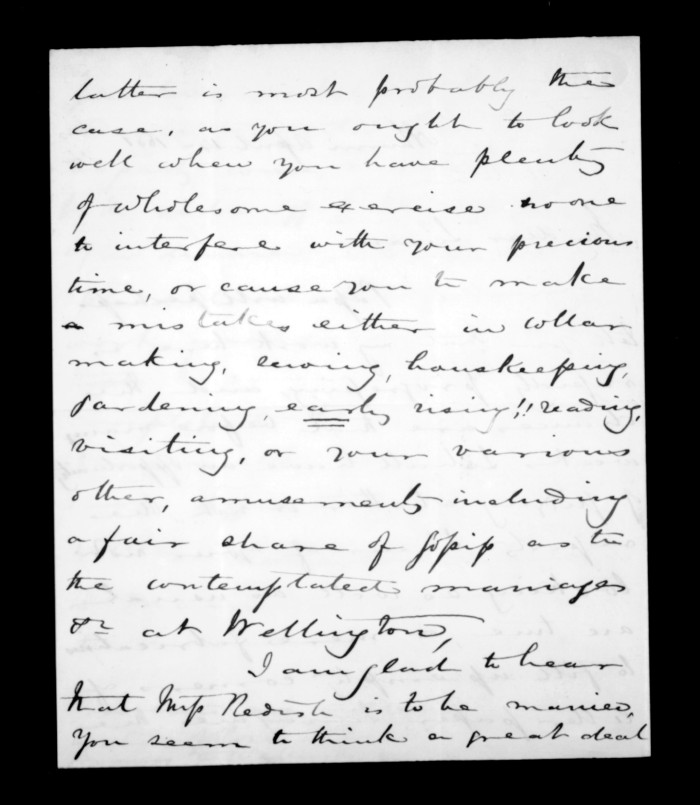 latter is most probably the
case, as you ought to look
well when you have plenty
of wholesome exercise no one
to interfere with your precious
time, or cause you to make
a mistakes either in collar
making, sewing, houskeeping,
Gardening, early rising!! reading,
visiting, or your various
other, amusements including
a fair share of Gossip as to
the contemplated marriages
&c at Wellington,
I am glad to hear
that Miss Redish is to be married,
you seem to think a great deal